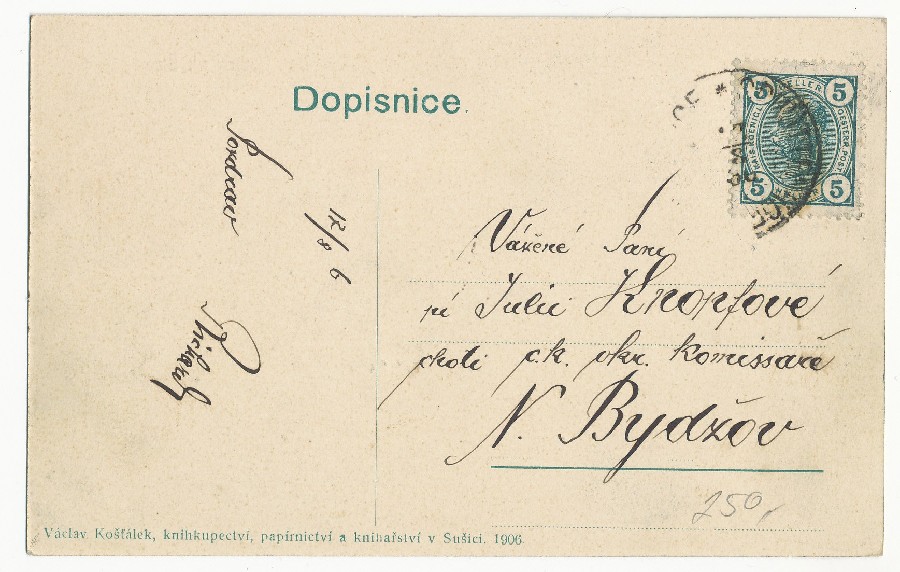 Dopisnice.
5 HELLER 5
5 HELLER 5
Pozdrav
17/8 6
Vážené Paní
pí Julii Knopfové
choti c.k. okr. komissaře
N. Bydžov
250,-
Václav Košťálek, knihkupectví, papírnictví a knihařství v Sušici. 1906.